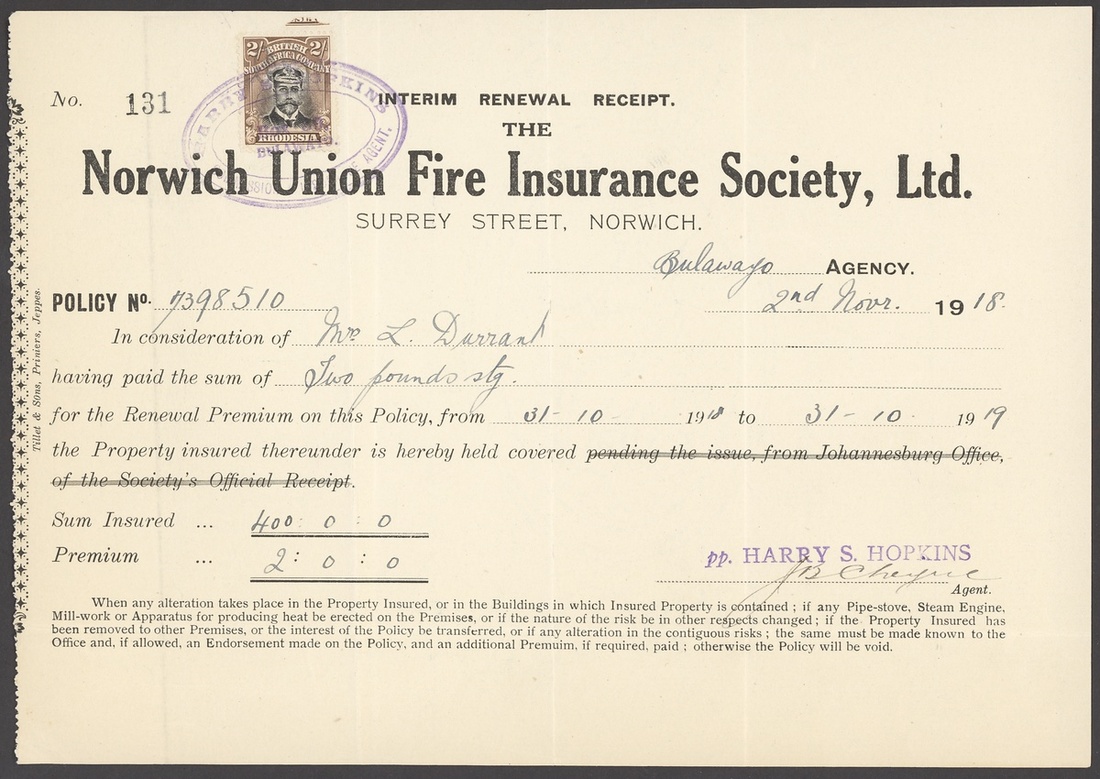 2/ BRITISH 2/
SOUTH AFRICA COMPANY
RHODESIA
HOPKINS
BULAWAYO.
AGENT.
No. 131
INTERIM RENEWAL RECEIPT.
THE
Norwich Union Fire Insurance Society, Ltd.
SURREY STREET, NORWICH.
Bulawayo AGENCY.
POLICY No. 7398510 2nd Novr. 1918.
In consideration of Mrs L. Durrant
having paid the sum of Two pounds stg.
for the Renewal Premium on this Policy, from 31-10- 1918 to 31-10- 1919
the Property insured thereunder is hereby held covered pending the issue, from Johannesburg Office,
of the Society's Official Receipt.
Sum Insured ... 400 : 0 : 0
Premium ... 2 : 0 : 0
pp. HARRY S. HOPKINS
Agent.
When any alteration takes place in the Property Insured, or in the Buildings in which Insured Property is contained ; if any Pipe-stove, Steam Engine,
Mill-work or Apparatus for producing heat be erected on the Premises, or if the nature of the risk be in other respects changed ; if the Property Insured has
been removed to other Premises, or the interest of the Policy be transferred, or if any alteration in the contiguous risks ; the same must be made known to the
Office and, if allowed, an Endorsement made on the Policy, and an additional Premuim, if required, paid ; otherwise the Policy will be void.
Tillet & Sons, Printers, Jeppes.